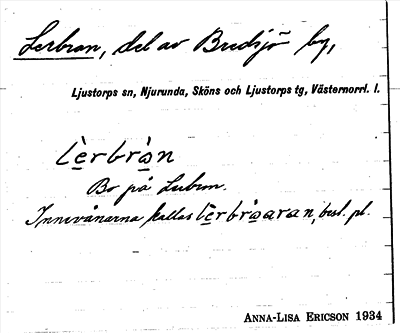 Lerbran, del av Bredsjö by,
Ljustorps sn, Njurunda, Sköns och Ljustorps tg, Västernorrl. l.
lè̱rbrà̱n
Bo på Lerbran.
Innevånarna kallas lè̱rbrå̱aran, best. pl.
ANNA-LISA ERICSON 1934